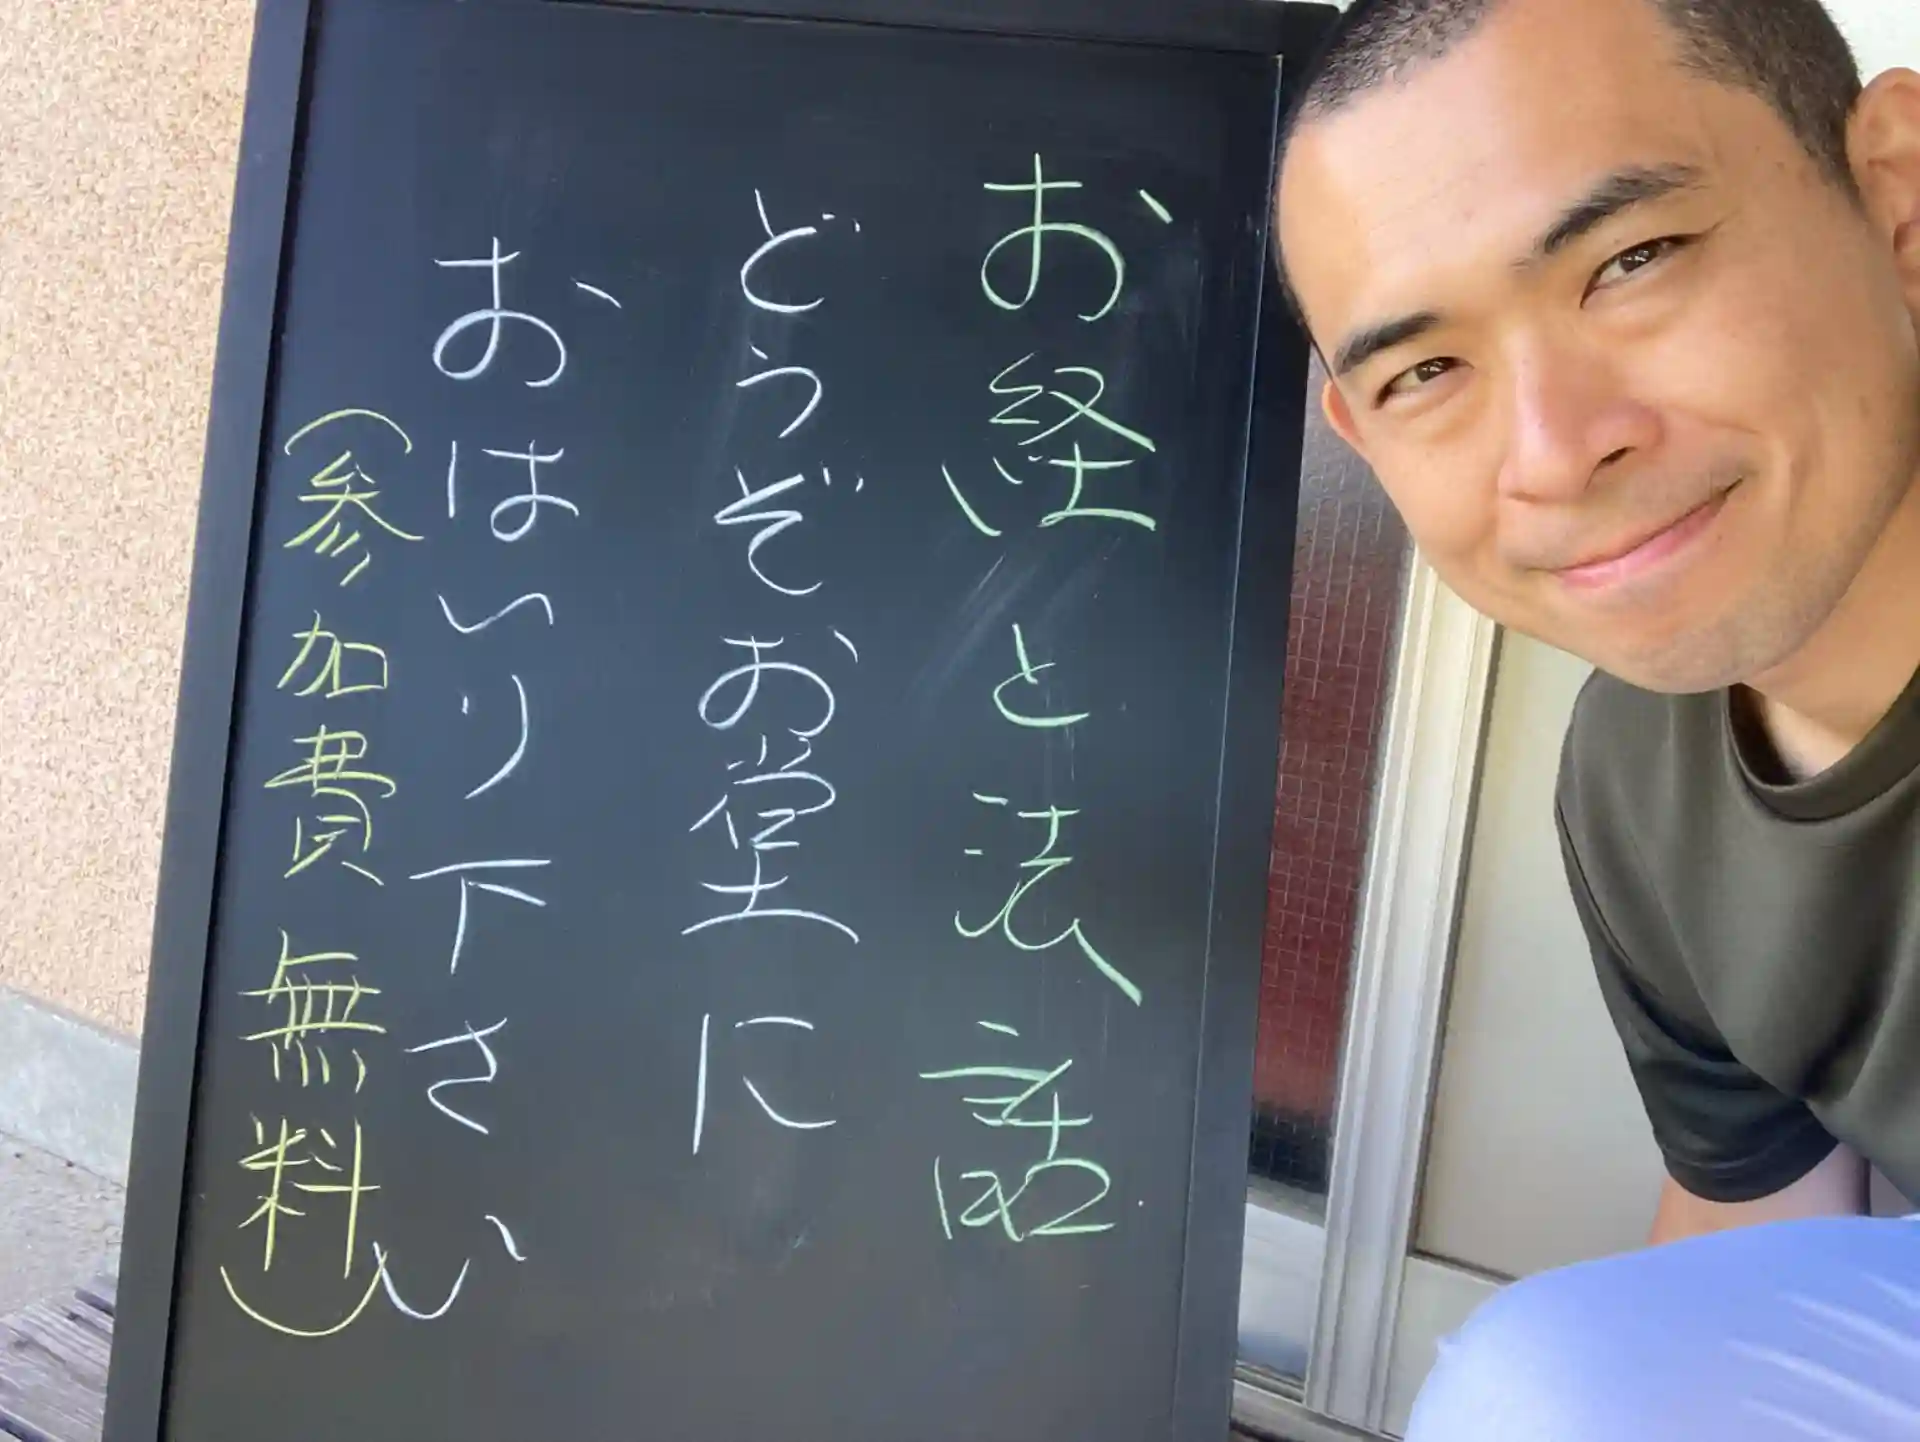 お経と法話
どうぞお堂に
おはいり下さい
（参加費無料）